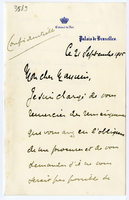 3583
Confidentielle
Palais de Bruxelles
Le 21 Septembre 1905
Mon cher
Je suis chargé de vous
remercier des renseignements
que vous avez eu l'obligeance
de me procurer et de vous
demander s'il ne vous
serait pas possible de